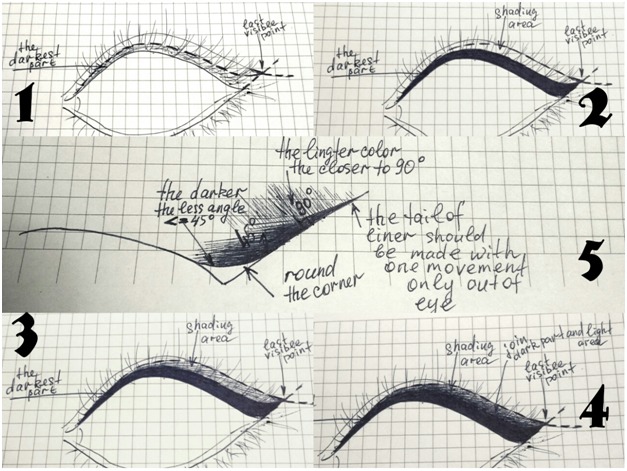 the
darkest
part
last
visible
point
1
shading
area
last
visible
point
the
darkest
part
2
the lingter color
the closer to 90°
the darker
the less angle
<= 45°
45°
90°
round
the corner
the tail of
liner should
be made with
one movement
only out of
eye
5
3
shading
area
last
visible
point
the
darkest
part
shading
area
join
dark part and light
area
last
visible
point
4